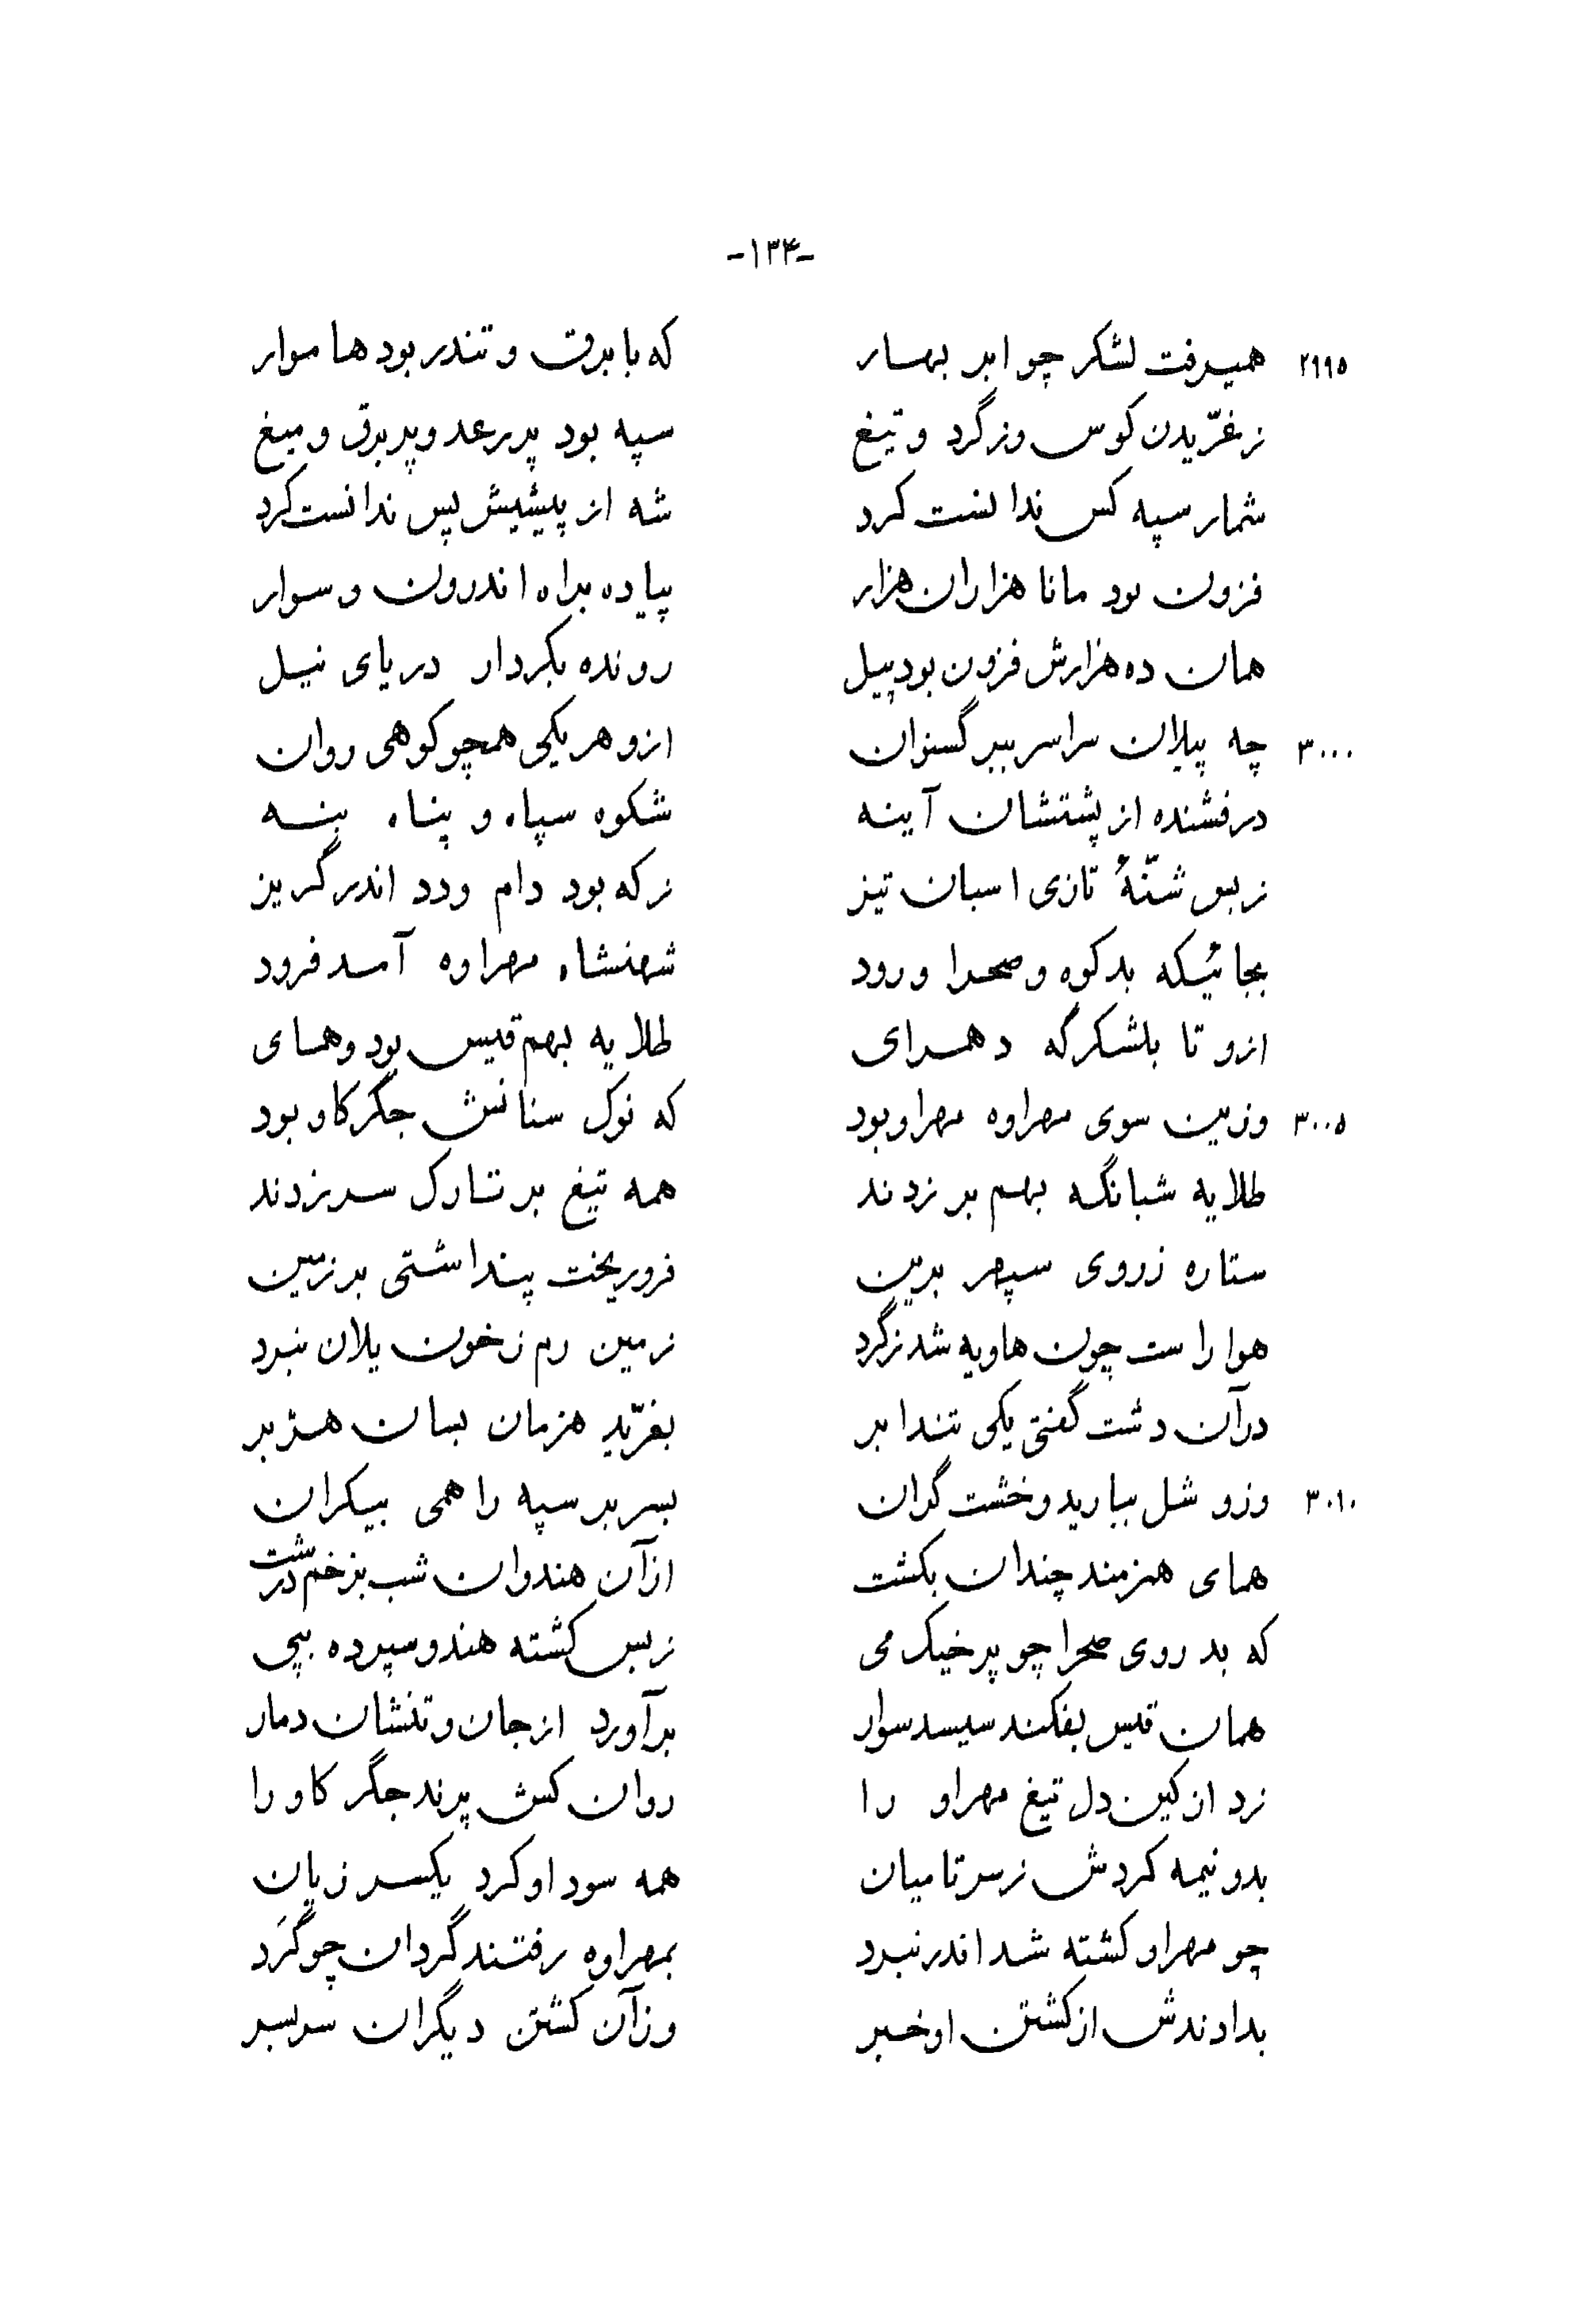 -۱۳۴-
۲۹۹۵ همیرفت لشکر چو ابر بهار که با برق و تندر بود هاموار
ز غرّیدن کوس و ز گرد و تیغ سپه بود پر رعد و پر برق و میغ
شمار سپه کس ندانست کرد شه از پیشیش پس ندانست کرد
فزون بود مانا هزاران هزار پیاده براه اندرون و سوار
همان ده هزارش فزون بود پیل رونده بکردار دریای نیل
۳۰۰۰ چه پیلان سراسر ببرگستوان ازو هر یکی همچو کوهی روان
درفشنده از پشتشان آینه شکوه سپاه و پناه بنه
ز بس شنّهٔ تازی اسبان تیز ز که بود دام و دد اندر گریز
بجائیکه بد کوه و صحرا و رود شهنشاه مهراوه آمد فرود
ازو تا بلشکرگه دهرای طلایه بهم قیس بود و همای
۳۰۰۵ وزین سوی مهراوه مهراو بود که نوک سنانش جگر کاو بود
طلایه شبانگه بهم بر زدند همه تیغ بر تارک سر زدند
ستاره ز روی سپهر برین فرو ریخت پنداشتی بر زمین
هوا راست چون هاویه شد ز گرد زمین رم ز خون یلان نبرد
در آن دشت گفتی یکی تند ابر بغرّید هزمان بسان هژبر
۳۰۱۰ وزو شل ببارید و خشت گران بسر بر سپه را همی بیکران
همای هنرمند چندان بکشت از آن هندوان شب بزخم درشت
که بد روی صحرا چو پر خیک می ز بس کشته هندو سپرده بپی
همان قیس بفکند سیسد سوار برآورد از جان و تنشان دمار
زد از کین دل تیغ مهراو را روان کش پرند جگر کاو را
بدو نیمه کردش ز سر تا میان همه سود او کرد یکسر زیان
چو مهراو کشته شد اندر نبرد بمهراوه رفتند گردان چو گَرد
بدادندش از کشتن او خبر وز آن کشتن دیگران سر بسر